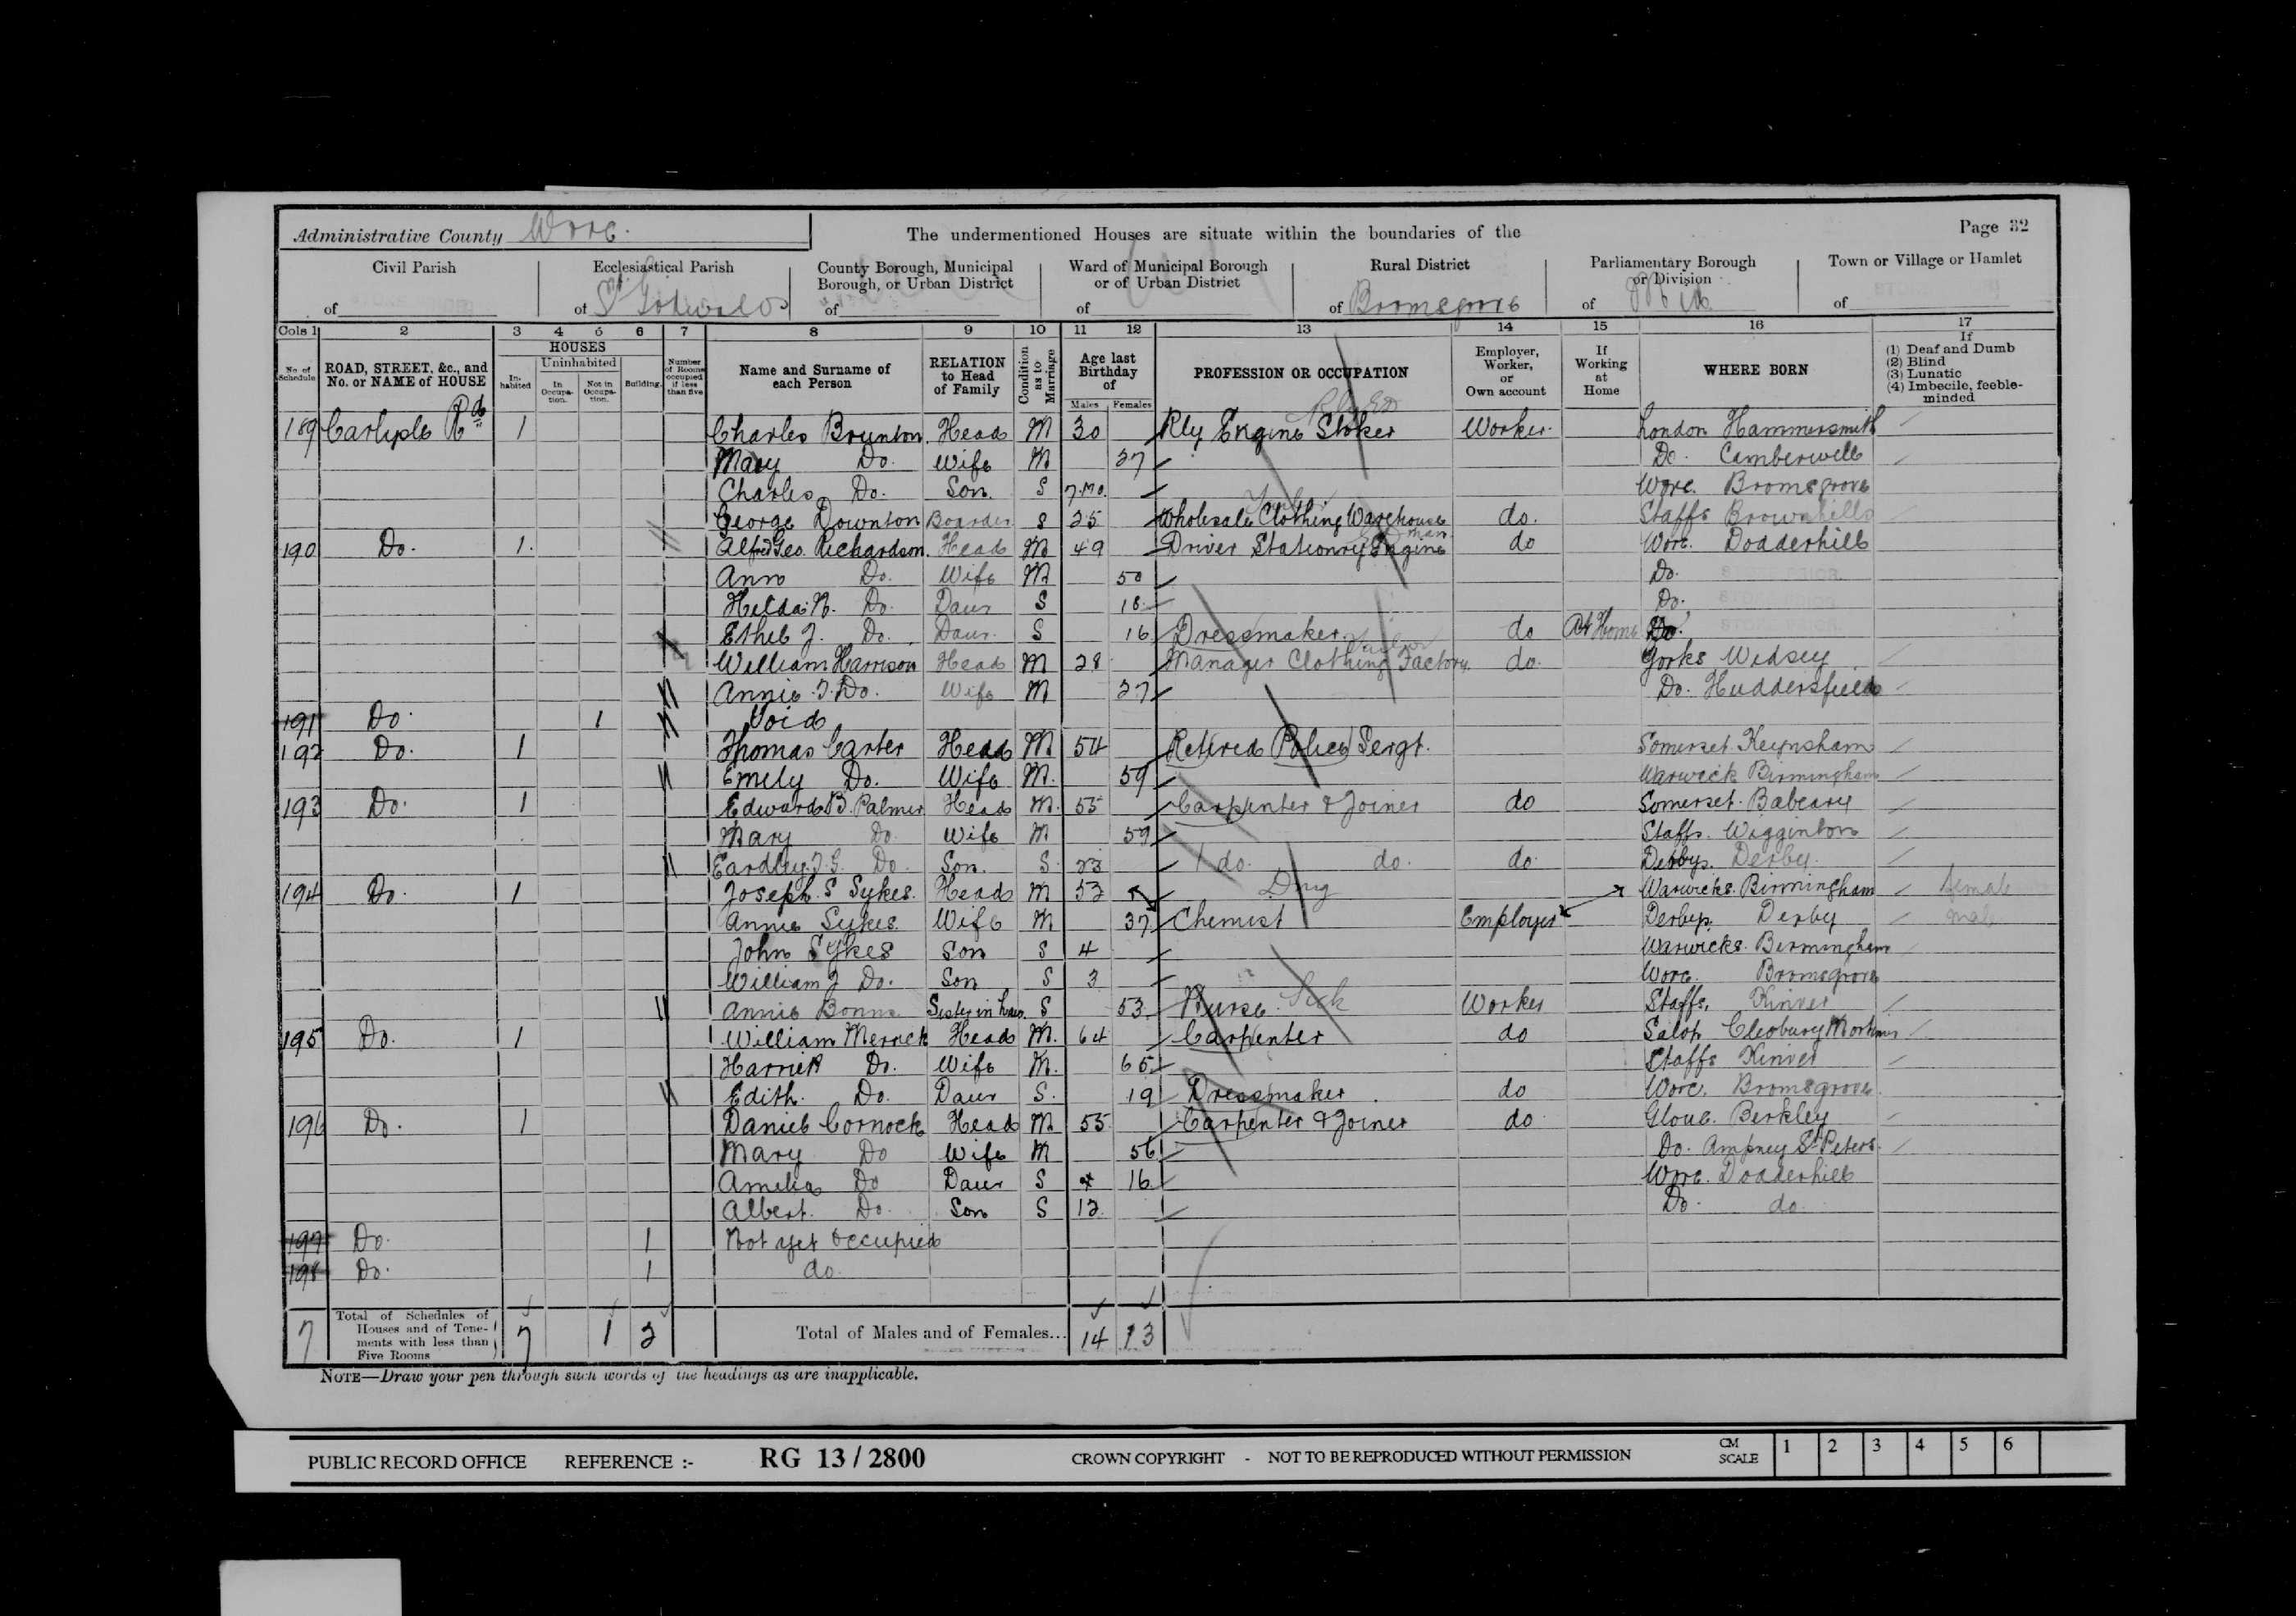 Administrative County Worc. The undermentioned Houses are situate within the boundaries of the Page 32
Civil Parish Ecclesiastical Parish County Borough, Municipal Borough, or Urban District Ward of Municipal Borough or of Urban District Rural District Parliamentary Borough or Division Town or Village or Hamlet
of of St Godwalds of of of Bromsgrove of Mid of
Cols 1 2 3 4 5 6 7 8 9 10 11 12 13 14 15 16 17
No. of Schedule ROAD, STREET, &c., and No. or NAME of HOUSE HOUSES Inhabited Uninhabited In Occupation. Not in Occupation. Building. Number of Rooms occupied if less than five Name and Surname of each Person RELATION to Head of Family Condition as to Marriage Age last Birthday of Males Females PROFESSION OR OCCUPATION Employer, Worker, or Own account If Working at Home WHERE BORN If (1) Deaf and Dumb (2) Blind (3) Lunatic (4) Imbecile, feeble-minded
189 Carlyle Rd 1 Charles Brunton Head M 30 Rly Engine Stoker Worker London Hammersmith
Mary Do. Wife M 27 Do. Camberwell
Charles Do. Son S 7 mo. Worc. Bromsgrove
George Downton Boarder S 25 Wholesale Clothing Warehouse man do. Staffs Brownhills
190 Do. 1. Alfred Geo. Richardson Head M 49 Driver Stationry Engine do Worc. Dodderhill
Ann Do. Wife M 50 Do.
Hilda N. Do. Daur S 18 Do.
Ethel J. Do. Daur. S 16 Dressmaker do At Home Do.
William Harrison Head M 28 Manager Clothing Factory do. Yorks Wibsey
Annie J. Do. Wife M 27 Do. Huddersfield
191 Do. 1 Void
192 Do. 1 Thomas Carter Head M 54 Retired Police Sergt. Somerset Keynsham
Emily Do. Wife M. 59 Warwick Birmingham
193 Do. 1 Edward B. Palmer Head M. 55 Carpenter & Joiner do Somerset. Babcary
Mary Do. Wife M 59 Staffs. Wigginton
Eardley J. G. Do. Son. S. 23 do. do. do. Derbys. Derby.
194 Do. 1 Joseph S Sykes. Head M 52 Drug Warwicks. Birmingham female
Annie Sykes. Wife M 37 Chemist Employer Derbys. Derby male
John Sykes Son S 4 Warwicks. Birmingham
William J Do. Son S 3 Worc. Bromsgrove
Annie Bonns Sister in Law. S 53 Nurse Sick Worker Staffs. Kinver
195 Do. 1 William Merrick Head M. 64 Carpenter do Salop Cleobury Mortimer
Harriet Do. Wife M. 65 Staffs Kinver
Edith. Do. Daur S. 19 Dressmaker do Worc. Bromsgrove
196 Do. 1 Daniel Cornock Head M 55 Carpenter & Joiner do Glouc. Berkley
Mary Do Wife M 56 Do. Ampney St Peters.
Amelia Do Daur S 16 Worc. Dodderhill
Albert. Do. Son S 12 Do. do.
197 Do. 1 Not yet occupied
198 Do. 1 do.
7 Total of Schedules of Houses and of Tenements with less than Five Rooms 7 1 2 Total of Males and of Females... 14 13
NOTE—Draw your pen through such words of the headings as are inapplicable.
PUBLIC RECORD OFFICE REFERENCE :- RG 13/2800 CROWN COPYRIGHT - NOT TO BE REPRODUCED WITHOUT PERMISSION CM SCALE 1 2 3 4 5 6